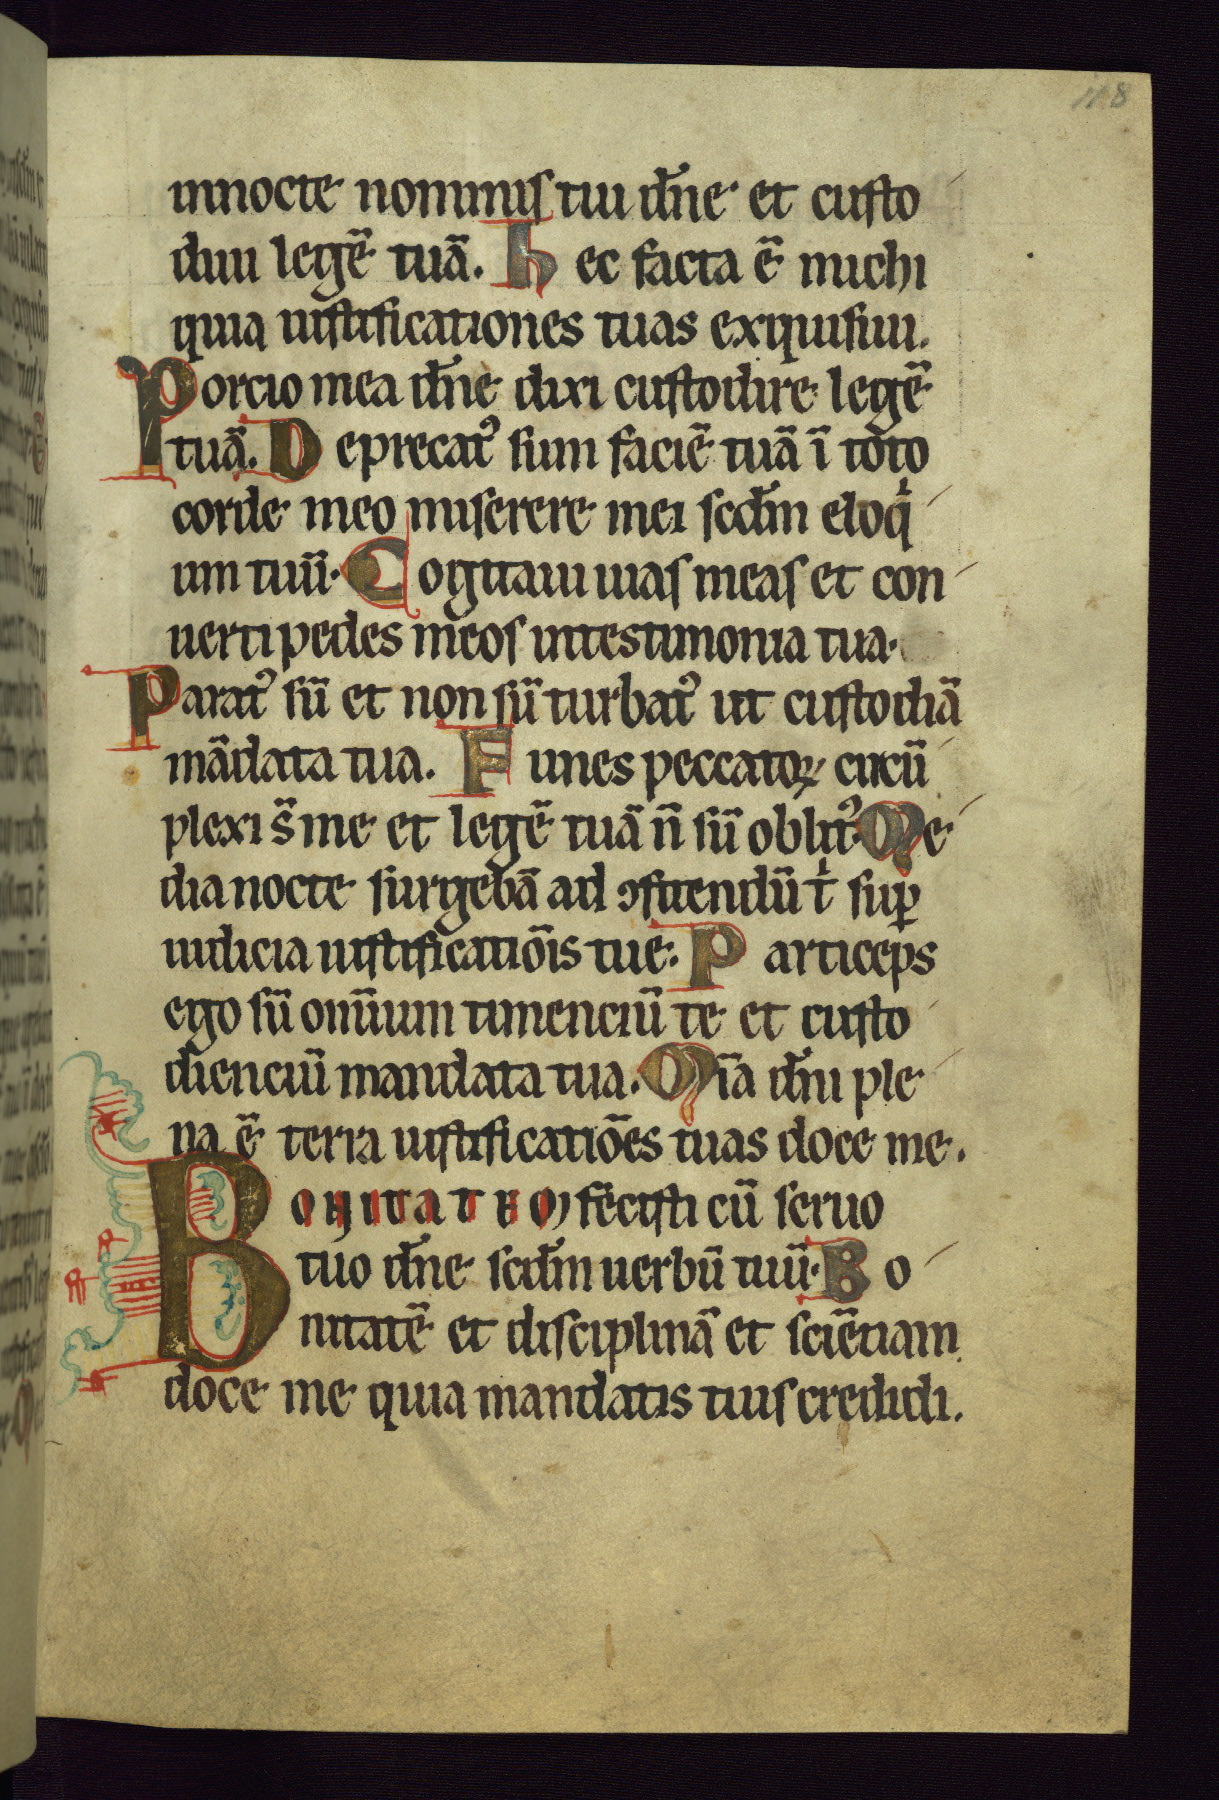 118
innocte nominis tui dn̄e et custo
diui legē tuā. hec facta ē michi
quia iustificationes tuas exquisiui.
Porcio mea dn̄e dixi custodire legē
tuā. Deprecat᾽ sum faciē tuā ī toto
corde meo miserere mei scd̄m eloq̇
um tuū. Cogitaui uias meas et con
uerti pedes meos intestimonia tua.
Parat᾽ sū et non sū turbat᾽ ut custodiā
mādata tua. Funes peccatoꝝ circū
plexi s̄ me et legē tuā n̄ sū oblit᾽. Me
dia nocte surgebā ad ꝯfitendū tⁱ suꝑ
iudicia iustificatiōis tue. Particeps
ergo sū omiūm timenciū te et custo
dienciū mandata tua. Mīa dn̄i ple
na ē terra iustificatiōes tuas doce me.
BONITATEM fecisti cū seruo
tuo dn̄e scd̄m uerbū tuū. Bo
nitatē et disciplinā et sciētiam
doce me quia mandatis tuis credidi.